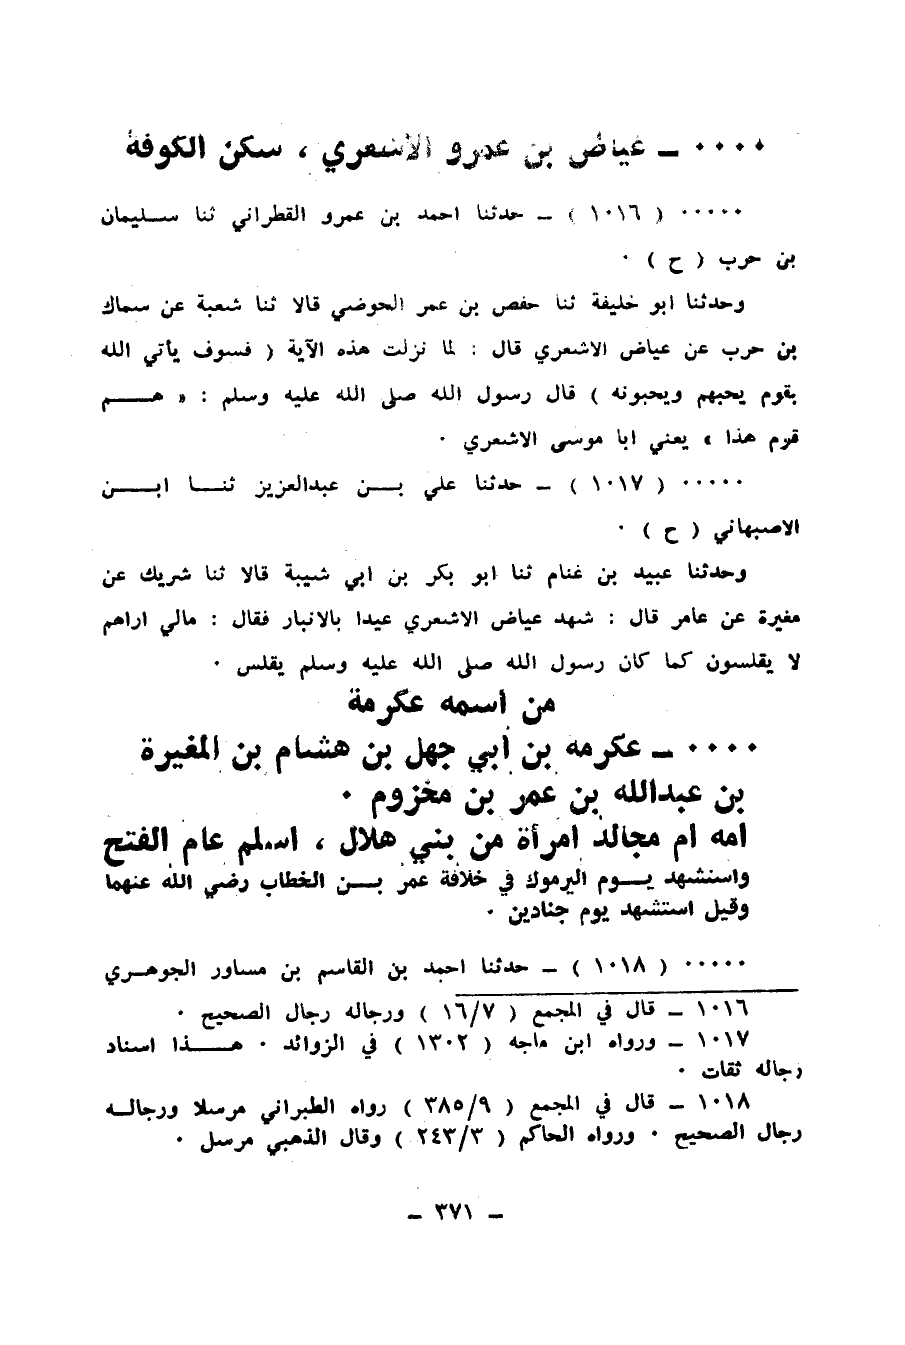 ٠٠٠٠ ــ عياض بن عمرو الأشعري ، سكن الكوفة
٠٠٠٠٠ ( ١٠١٦ ) ــ حدثنا احمد بن عمرو القطراني ثنا سـليمان
بن حرب ( ح ) ٠
وحدثنا ابو خليفة ثنا حفص بن عمر الحوضي قالا ثنا شعبة عن سماك
بن حرب عن عياض الاشعري قال : لما نزلت هذه الآية ( فسوف يأتي الله
بقوم يحبهم ويحبونه ) قال رسول الله صلى الله عليه وسلم : « هـــم
قوم هذا » يعني ابا موسى الاشعري ٠
٠٠٠٠٠ ( ١٠١٧ ) ــ حدثنا علي بــن عبدالعزيز ثنــا ابــن
الاصبهاني ( ح ) ٠
وحدثنا عبيد بن غنام ثنا ابو بكر بن ابي شيبة قالا ثنا شريك عن
مغيرة عن عامر قال : شهد عياض الاشعري عيدا بالانبار فقال : مالي اراهم
لا يقلسون كما كان رسول الله صلى الله عليه وسلم يقلس ٠
من اسمه عكرمة
٠٠٠٠ ــ عكرمه بن أبي جهل بن هشام بن المغيرة
بن عبدالله بن عمر بن مخزوم ٠
امه ام مجالد امرأة من بني هلال ، اسلم عام الفتح
واستشهد يــوم اليرموك في خلافة عمر بــن الخطاب رضي الله عنهما
وقيل استشهد يوم جنادين ٠
٠٠٠٠٠ ( ١٠١٨ ) ــ حدثنا احمد بن القاسم بن مساور الجوهـري
١٠١٦ ــ قال في المجمع ( ١٦/٧ ) ورجاله رجال الصحيح ٠
١٠١٧ ــ ورواه ابن ماجه ( ١٣٠٢ ) في الزوائد ٠ هــــذا اسناد
رجاله ثقات ٠
١٠١٨ ــ قال في المجمع ( ٣٨٥/٩ ) رواه الطبراني مرسلا ورجالــه
رجال الصحيح ٠ ورواه الحاكم ( ٢٤٣/٣ ) وقال الذهبي مرسل ٠
ــ ٣٧١ ــ